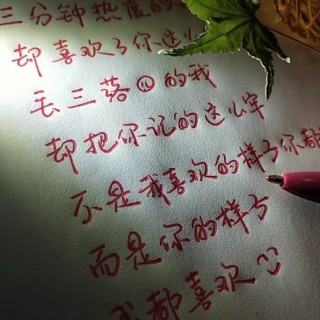 三分钟热度的
却喜欢了你这么
丢三落四的我
却把你记的这么牢
不是我喜欢的样子你都
而是你的样子
我都喜欢